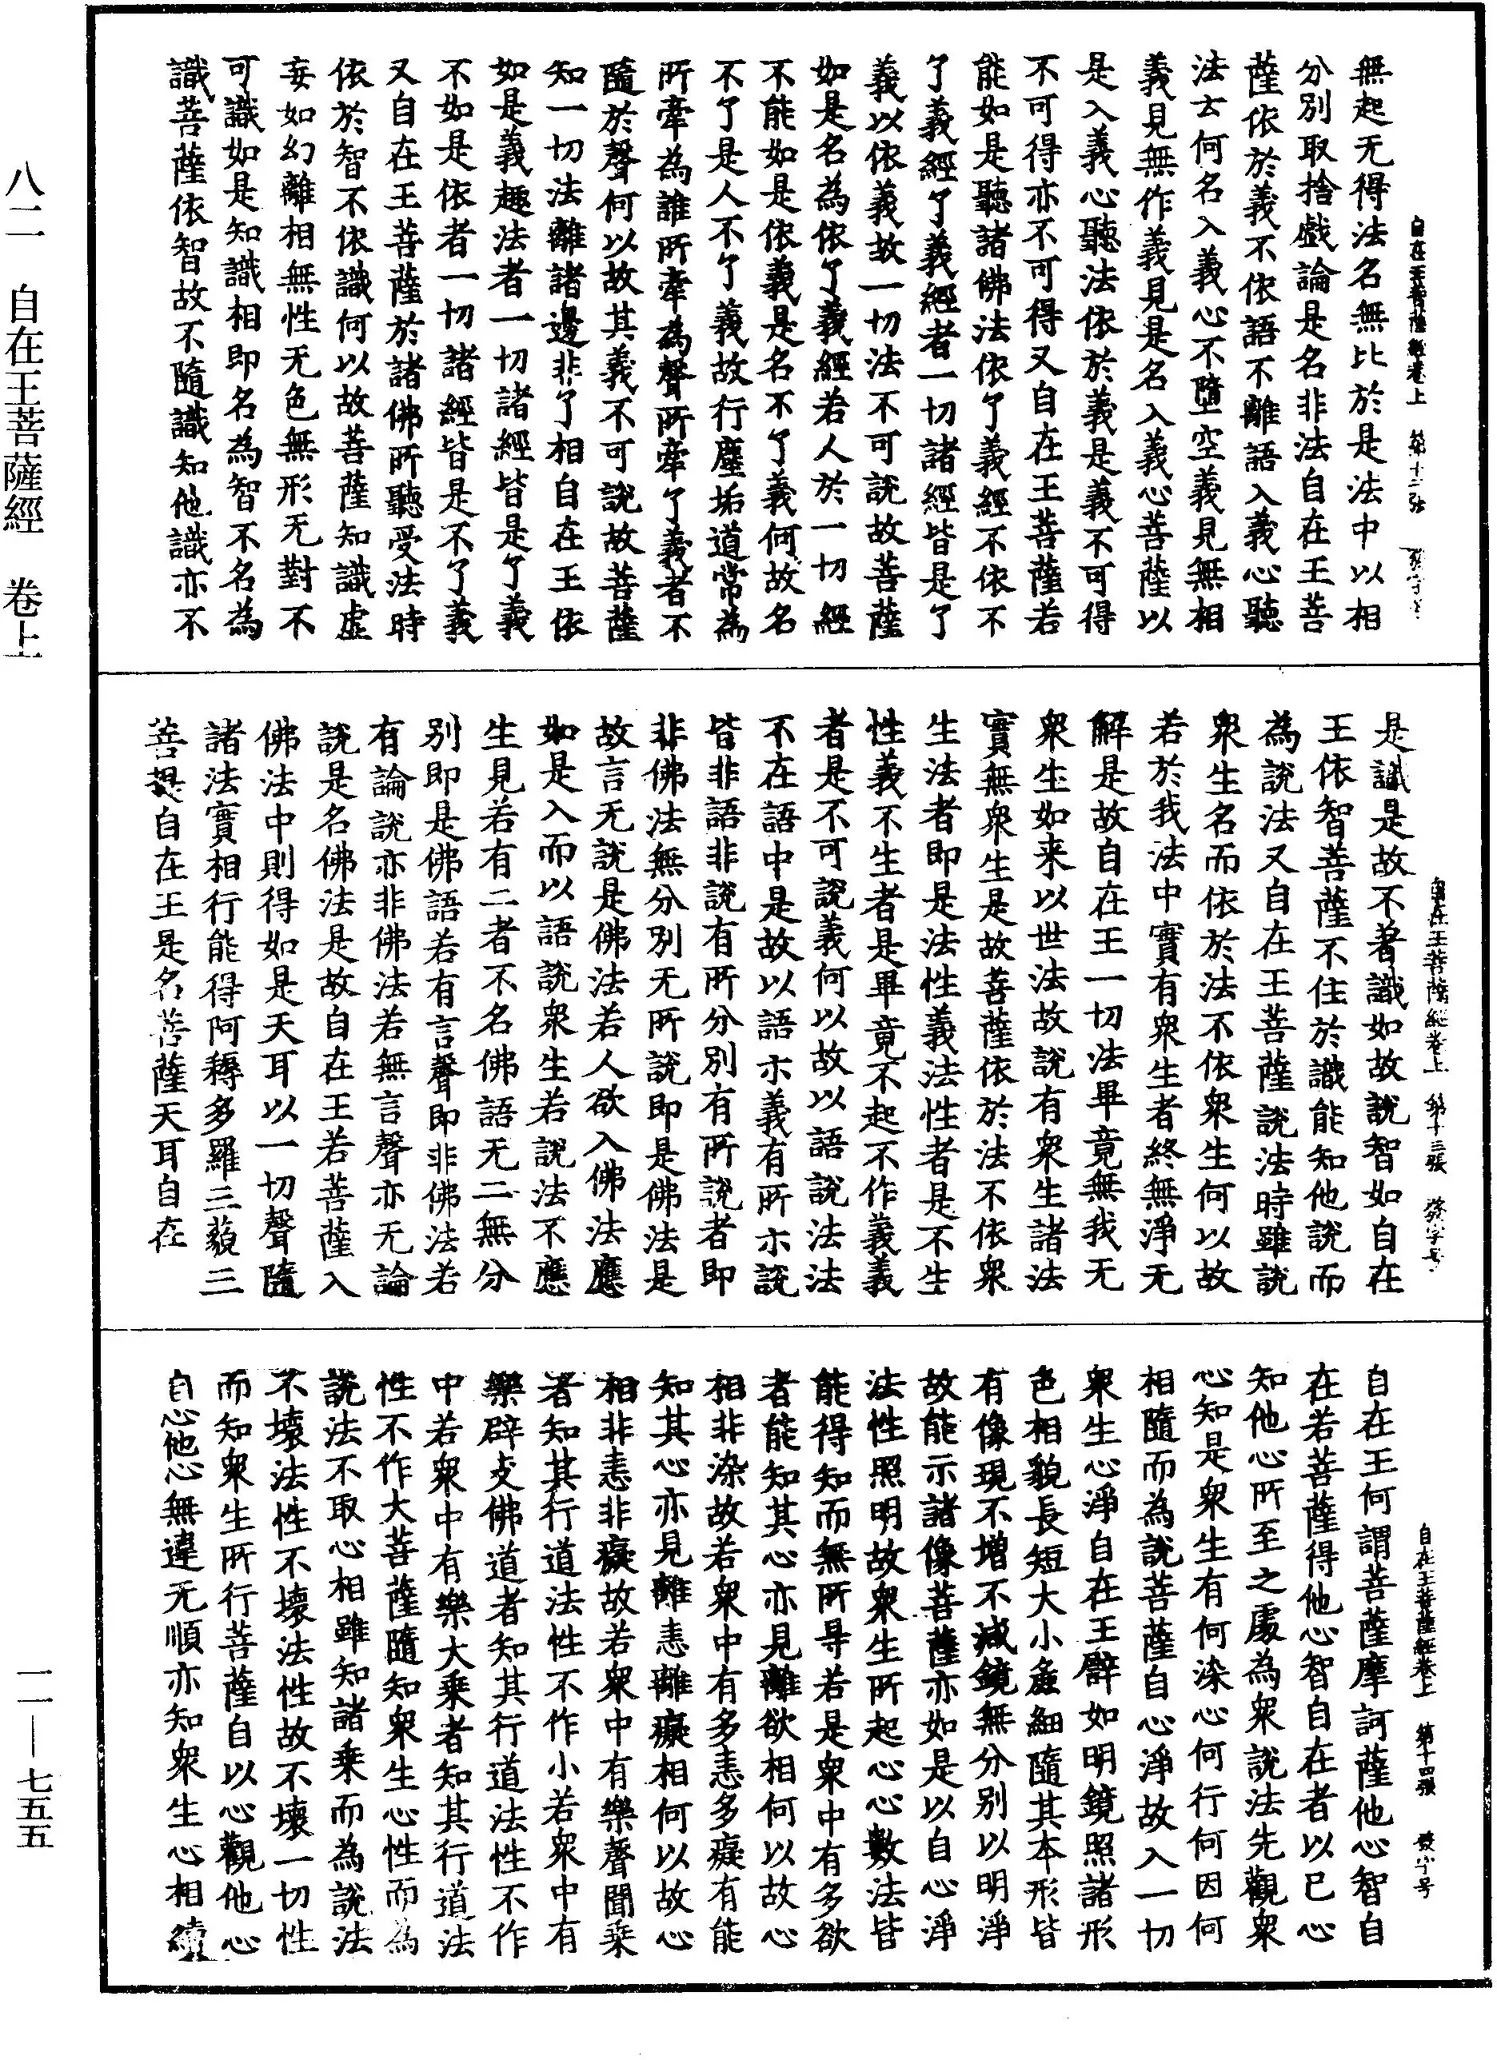 自在王菩薩經卷上　第十二張　發字号
無起无得法名無比於是法中以相
分別取捨戲論是名非法自在王菩
薩依於義不依語不離語入義心聽
法云何名入義心不墮空義見無相
義見無作義見是名入義心菩薩以
是入義心聽法依於義是義不可得
不可得亦不可得又自在王菩薩若
能如是聽諸佛法依了義經不依不
了義經了義經者一切諸經皆是了
義以依義故一切法不可說故菩薩
如是名為依了義經若人於一切經
不能如是依義是名不了義何故名
不了是人不了義故行塵垢道常為
所牽為誰所牽為聲所牽了義者不
隨於聲何以故其義不可說故菩薩
知一切法離諸邊非了相自在王依
如是義趣法者一切諸經皆是了義
不如是依者一切諸經皆是不了義
又自在王菩薩於諸佛所聽受法時
依於智不依識何以故菩薩知識虛
妄如幻離相無性无色無形无對不
可識如是知識相即名為智不名為
識菩薩依智故不隨識知他識亦不
自在王菩薩經卷上　第十三張　發字号
是識是故不著識如故說智如自在
王依智菩薩不住於識能知他說而
為說法又自在王菩薩說法時雖說
衆生名而依於法不依衆生何以故
若於我法中實有衆生者終無淨无
解是故自在王一切法畢竟無我无
衆生如来以世法故說有衆生諸法
實無衆生是故菩薩依於法不依衆
生法者即是法性義法性者是不生
性義不生者是畢竟不起不作義義
者是不可說義何以故以語說法法
不在語中是故以語示義有所示說
皆非語非說有所分別有所說者即
非佛法無分別无所說即是佛法是
故言无說是佛法若人欲入佛法應
如是入而以語說衆生若說法不應
生見若有二者不名佛語无二無分
別即是佛語若有言聲即非佛法若
有論說亦非佛法若無言聲亦无論
說是名佛法是故自在王若菩薩入
佛法中則得如是天耳以一切聲隨
諸法實相行能得阿耨多羅三藐三
菩提自在王是名菩薩天耳自在
自在王菩薩經卷上　第十四張　發字号
自在王何謂菩薩摩訶薩他心智自
在若菩薩得他心智自在者以已心
知他心所至之處為衆說法先觀衆
心知是衆生有何染心何行何因何
相隨而為說菩薩自心淨故入一切
衆生心淨自在王譬如明鏡照諸形
色相貌長短大小麁細隨其本形皆
有像現不增不減鏡無分別以明淨
故能示諸像菩薩亦如是以自心淨
法性照明故衆生所起心心數法皆
能得知而無所㝵若是衆中有多欲
者能知其心亦見離欲相何以故心
相非染故若衆中有多恚多癡有能
知其心亦見離恚離癡相何以故心
相非恚非癡故若衆中有樂聲聞乘
者知其行道法性不作小若衆中有
樂辟支佛道者知其行道法性不作
中若衆中有樂大乘者知其行道法
性不作大菩薩隨知衆生心性而為
說法不取心相雖知諸乘而為說法
不壞法性不壞法性故不壞一切性
而知衆生所行菩薩自以心觀他心
自心他心無違无順亦知衆生心相續
八二　自在王菩薩經　卷上
一一—七五五